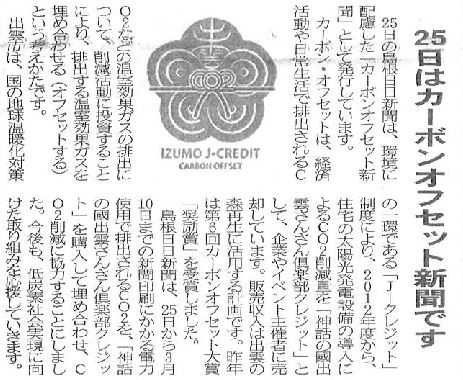 25日はカーボンオフセット新聞です
25日の島根日日新聞は、環境に
配慮した「カーボンオフセット新
聞」として発行しています。
カーボン・オフセットは、経済
活動や日常生活で排出されるC
O2などの温室効果ガスの排出に
ついて、削減活動に投資すること
により、排出する温室効果ガスを
埋め合わせる（オフセットする）
という考えかたです。
出雲市は、国の地球温暖化対策
の一環である「J－クレジット」
制度により、2012年度から、
住宅の太陽光発電設備の導入に
よるCO2削減量を「神話の國出
雲さんさん倶楽部クレジット」と
して、企業やイベント主催者に売
却しています。販売収入は出雲の
森再生に活用する計画です。昨年
は第6回カーボンオフセット大賞
「奨励賞」を受賞しました。
島根日日新聞は、25日から3月
10日までの新聞印刷にかかる電力
使用で排出されるCO2を、「神話
の國出雲さんさん倶楽部クレジッ
ト」を購入して埋め合わせ、C
O2削減に協力することにしまし
た。今後も、低炭素社会実現に向
けた取り組みを応援していきます。
IZUMO J-CREDIT
CARBON OFFSET